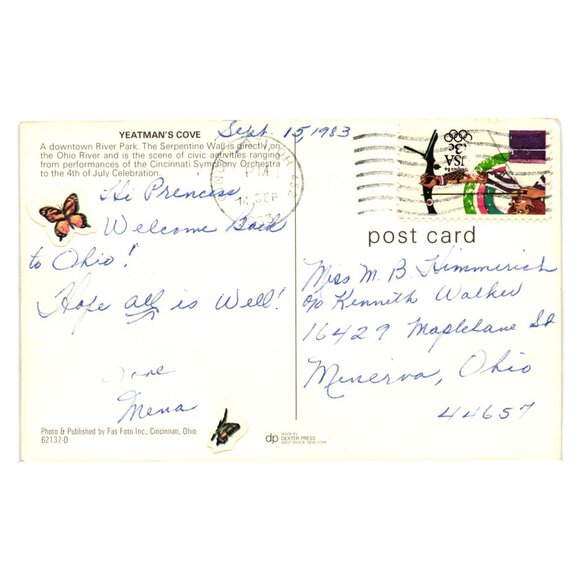 Sept. 15, 1983
YEATMAN'S COVE
A downtown River Park. The Serpentine Wall is directly on
the Ohio River and is the scene of civic activities ranging
from performances of the Cincinnati Symphony Orchestra
to the 4th of July Celebration.
Hi Princess
Welcome Back
to Ohio!
Hope all is Well!
Love
Mena
Photo & Published by Fas Foto Inc., Cincinnati, Ohio
62137-D
PM
14 SEP
USA
13c
post card
Miss M. B. Himmerich
c/o Kenneth Walker
16429 Maplelane St
Minerva, Ohio
44657
dp
MADE BY
DEXTER PRESS
WEST NYACK, NEW YORK